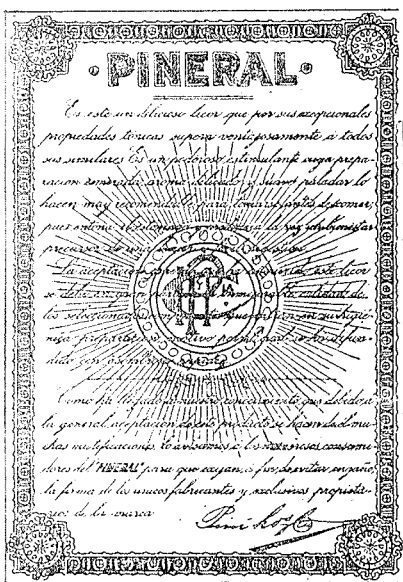 PINERAL
Es este un delicioso licor que por sus excepcionales
propiedades tónicas supera ventajosamente á todos
sus similares Es un poderoso estimulante cuya prepa-
racion esmerada, aroma delicado y suave paladar lo
hacen muy recomendable para tomarse antes de comer,
pues entona el estómago y produce á la vez un bienestar
precursor de una
La aceptacion con que el público este licor
se debe en gran parte á la calidad de
los que en su higié-
nica preparacion, motivo por el cual se ha difun-
dido con asombrosa rapidez
Como ha llegado á nuestro conocimiento que debido á
la general aceptacion de este producto se hacen de él mu-
chas mistificaciones, lo avisamos á los numerosos consumi-
dores del "PINERAL" para que exijan, á fin de evitar engaño,
la firma de los unicos fabricantes y exclusivos propieta-
rios de la marca